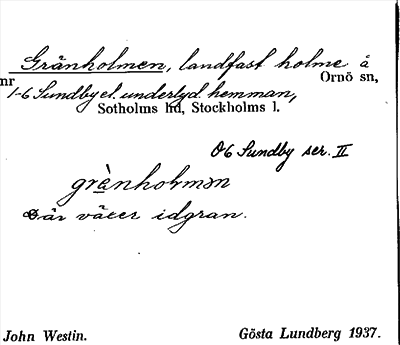 Granholmen, landfast holme å
nr Ornö sn,
1-6 Sundby el. underlyd. hemman,
Sotholms hd, Stockholms l.
O6 Sundby ser. II
grànholmən
där växer idgran.
John Westin. Gösta Lundberg 1937.